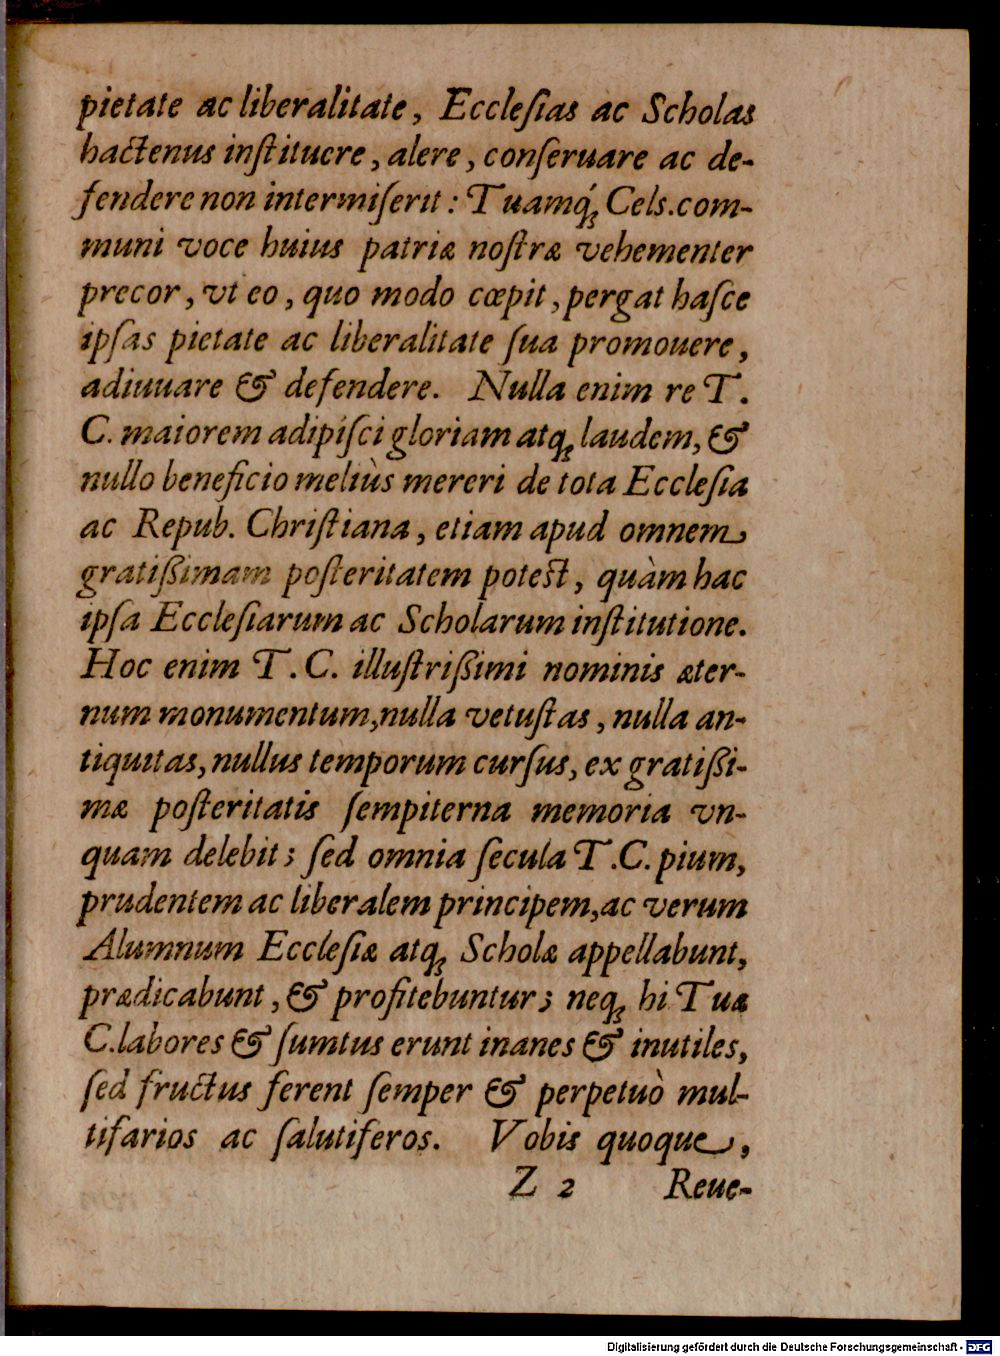 pietate ac liberalitate, Eccleſias ac Scholas
hactenus inſtituere, alere, conſeruare ac de-
fendere non intermiſerit: Tuamq́; Cels. com-
muni voce huius patriæ noſtræ vehementer
precor, vt eo, quo modo cœpit, pergat haſce
ipſas pietate ac liberalitate ſua promouere,
adiuuare & defendere. Nulla enim re T.
C. maiorem adipiſci gloriam atq; laudem, &
nullo beneficio meliùs mereri de tota Eccleſia
ac Repub. Chriſtiana, etiam apud omnem
gratißimam poſteritatem poteſt, quàm hac
ipſa Eccleſiarum ac Scholarum inſtitutione.
Hoc enim T. C. illuſtrißimi nominis æter-
num monumentum, nulla vetuſtas, nulla an-
tiquitas, nullus temporum curſus, ex gratißi-
mæ poſteritatis ſempiterna memoria vn-
quam delebit; ſed omnia ſecula T. C. pium,
prudentem ac liberalem principem, ac verum
Alumnum Eccleſiæ atq; Scholæ appellabunt,
prædicabunt, & profitebuntur; neq; hi Tuæ
C. labores & ſumtus erunt inanes & inutiles,
ſed fructus ferent ſemper & perpetuò mul-
tifarios ac ſalutiferos. Vobis quoque,
Z 2 Reue-
Digitalisierung gefördert durch die Deutsche Forschungsgemeinschaft - DFG